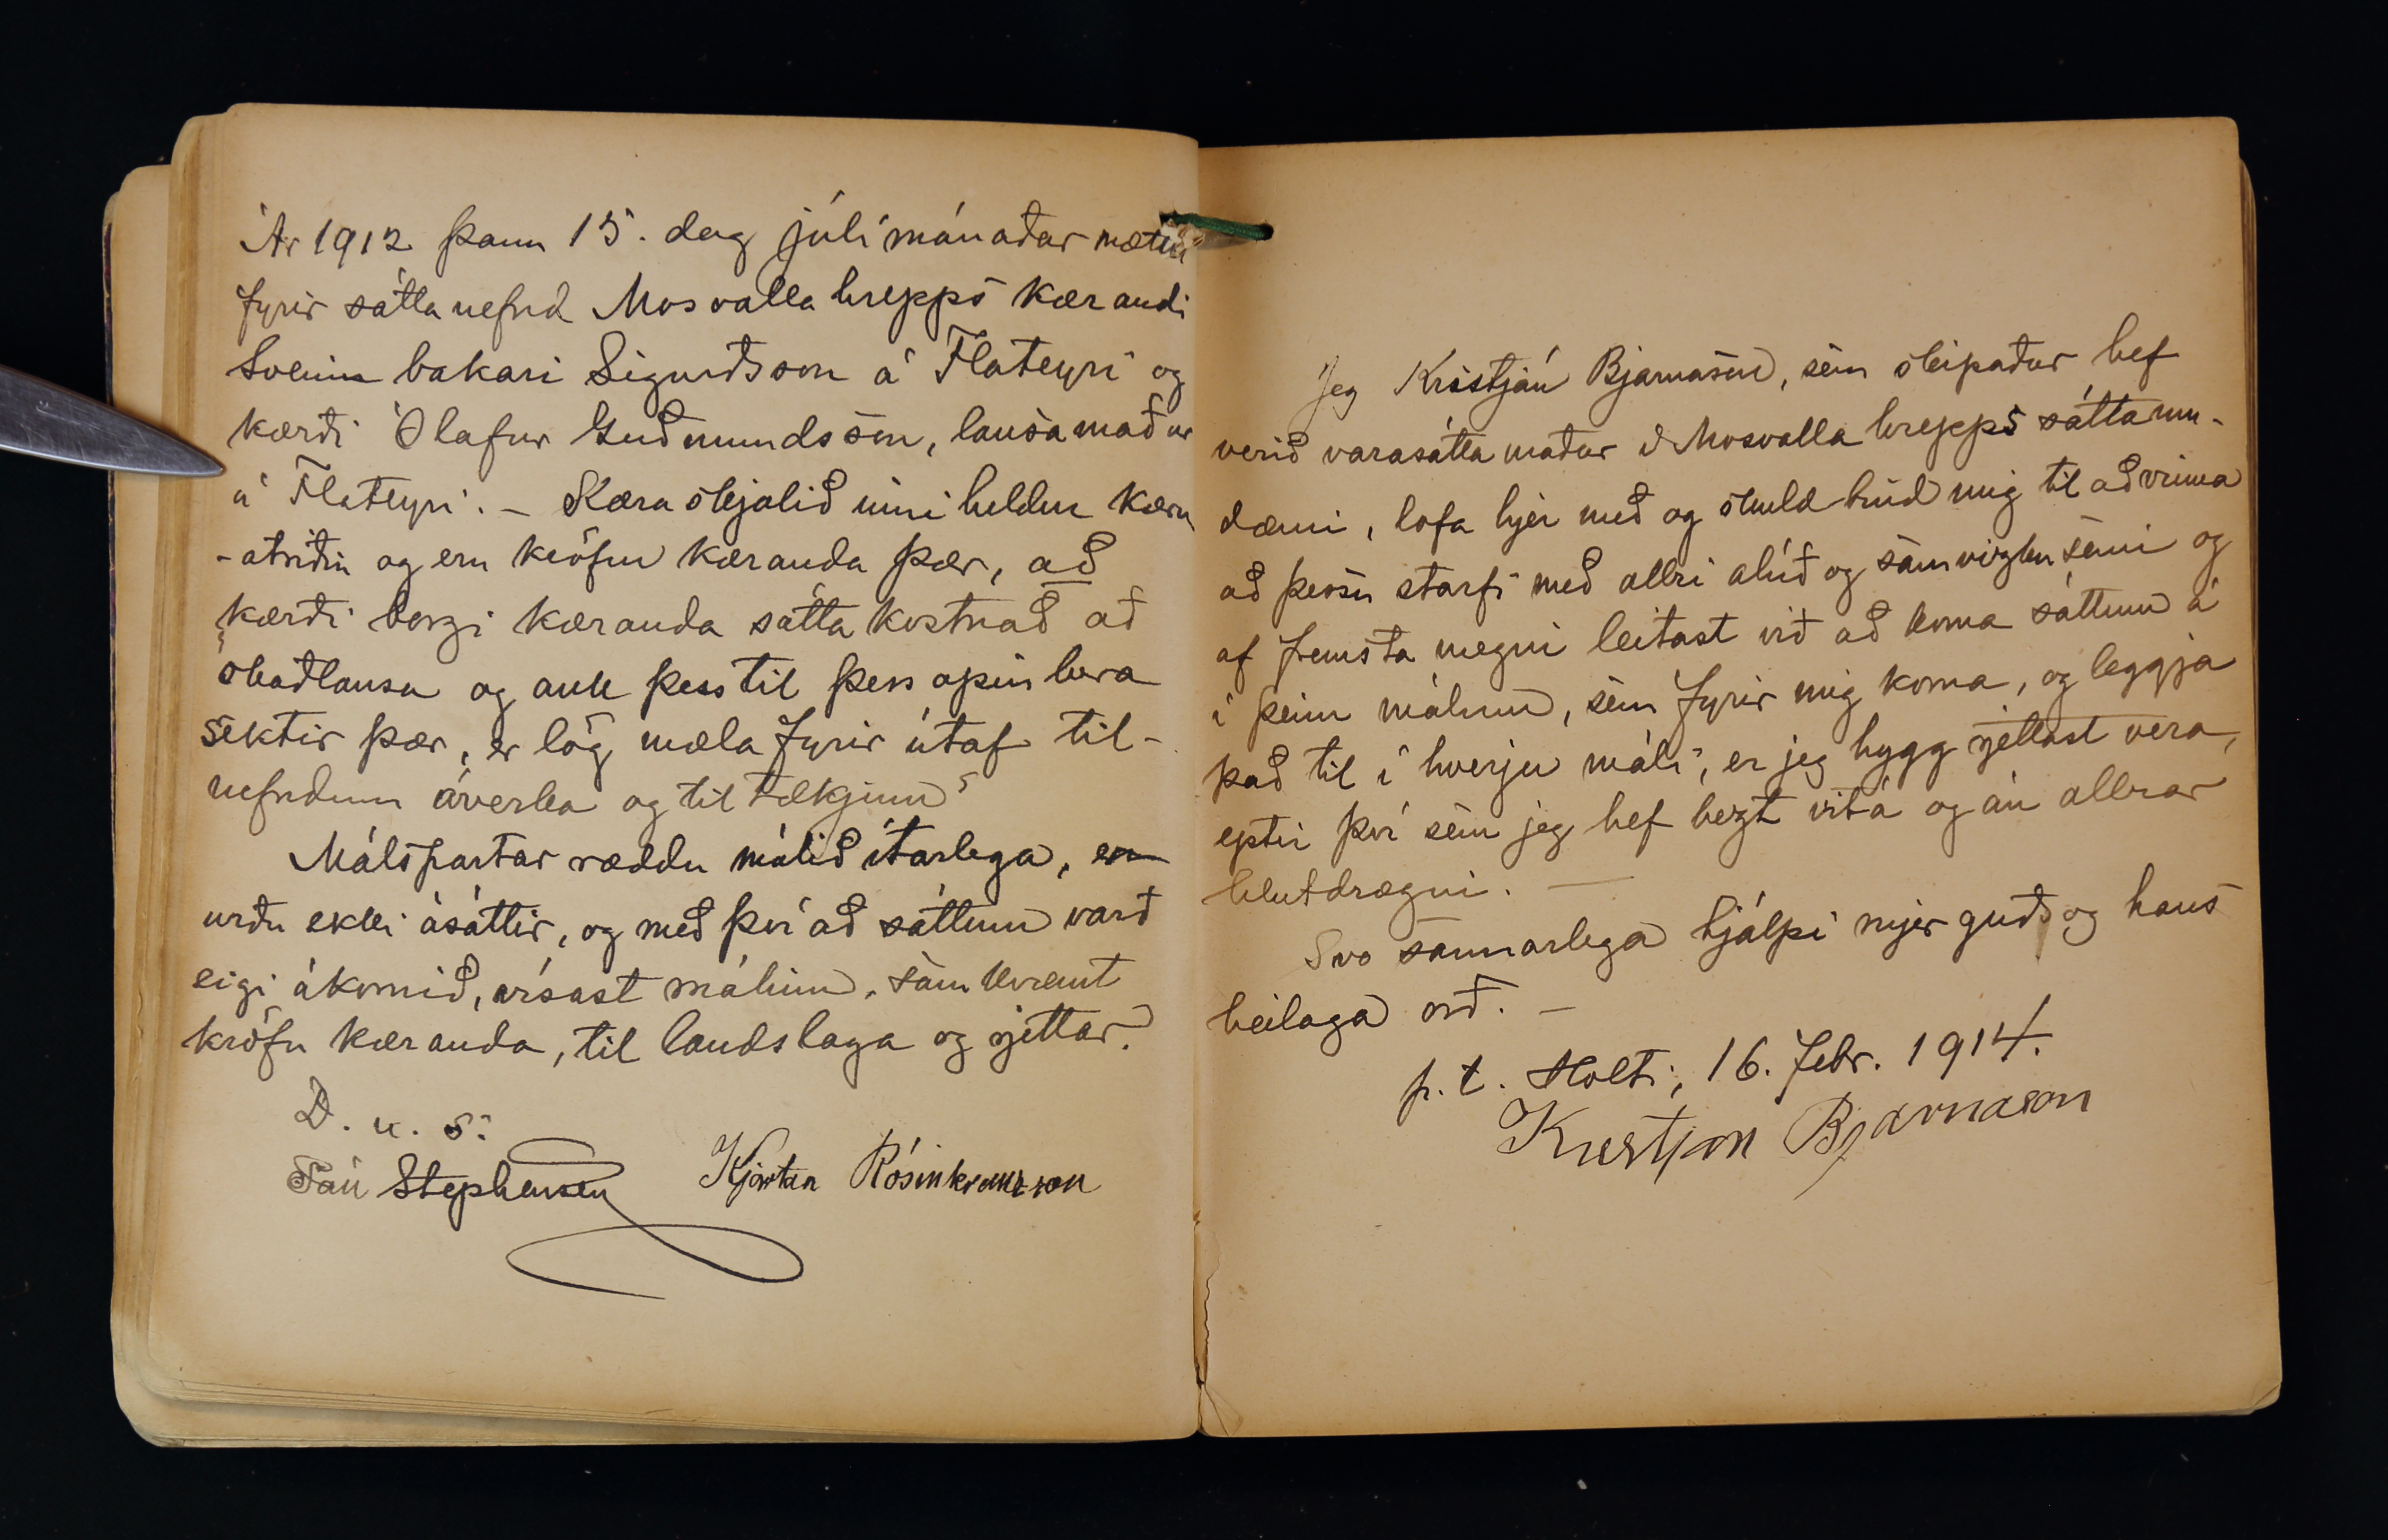 Ár 1912 þann 15. dag júlímánaðar mættu
fyrir sáttanefnd Mosvallahrepps kærandi
Sveinn bakari Sigurðsson á Flateyri og
kærði Ólafur Guðmundsson, lausamaður
á Flateyri. - Kæraskjalið inniheldur kæru
-atriðin og eru kröfur kæranda þær, að
kærði borgi kæranda sáttakostnað að
skaðlausu og auk þess til þess opinbera
sektir þær, er lög mæla fyrir útaf til-
nefndum áverka og tiltækjum.
Málspartar ræddu málið ítarlega, en
urðu ekki ásáttir, og með því að sáttum varð
eigi ákomið, vísast málinu, samkvæmt
kröfu kæranda, til landslaga og rjettar.
D. u. s.
Ján Stephensen Kjartan Rósinkranzson
Jeg Kristján Bjarnason, sem skipaður hef
verið varasáttamaður í Mosvallahrepps sáttaum-
dæmi, lofa hjer með og skuldbind mig til að vinna
að þessu starfi með allri alúð og samvizkusemi og
af fremsta megni leitast við að koma sáttum á
í þeim málum, sem fyrir mig koma, og leggja
það til í hverju máli, er jeg hygg rjettast vera,
eptir því sem jeg hef bezt vit á og án allrar
hlutdrægni. —
Svo sannarlega hjálpi mjer guð og hans
heilaga orð. -
p. t. Holti, 16. febr. 1914.
Kristján Bjarnason